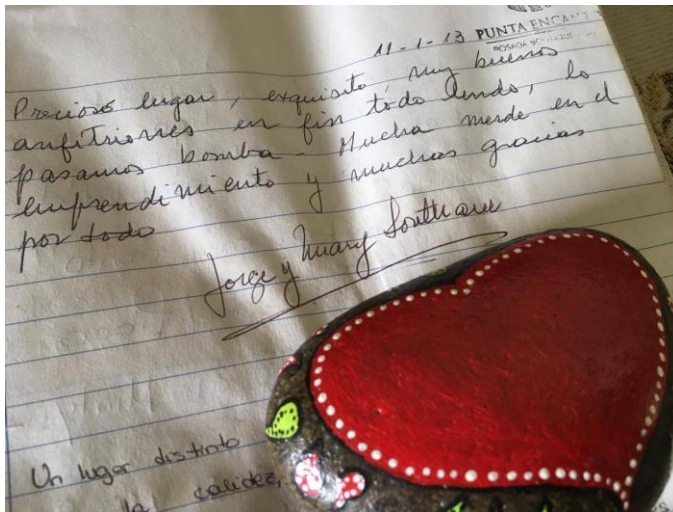 11-1-13 PUNTA ENCANT
POSADA
Precioso lugar, exquisito muy buenos
anfitriones en fin todo lindo, lo
pasamos bomba. Mucha merde en el
emprendimiento y muchas gracias
por todo
Jorge y Mary
Un lugar distinto
la calidez,